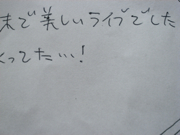 末で美しいライブでした
ってたい…！